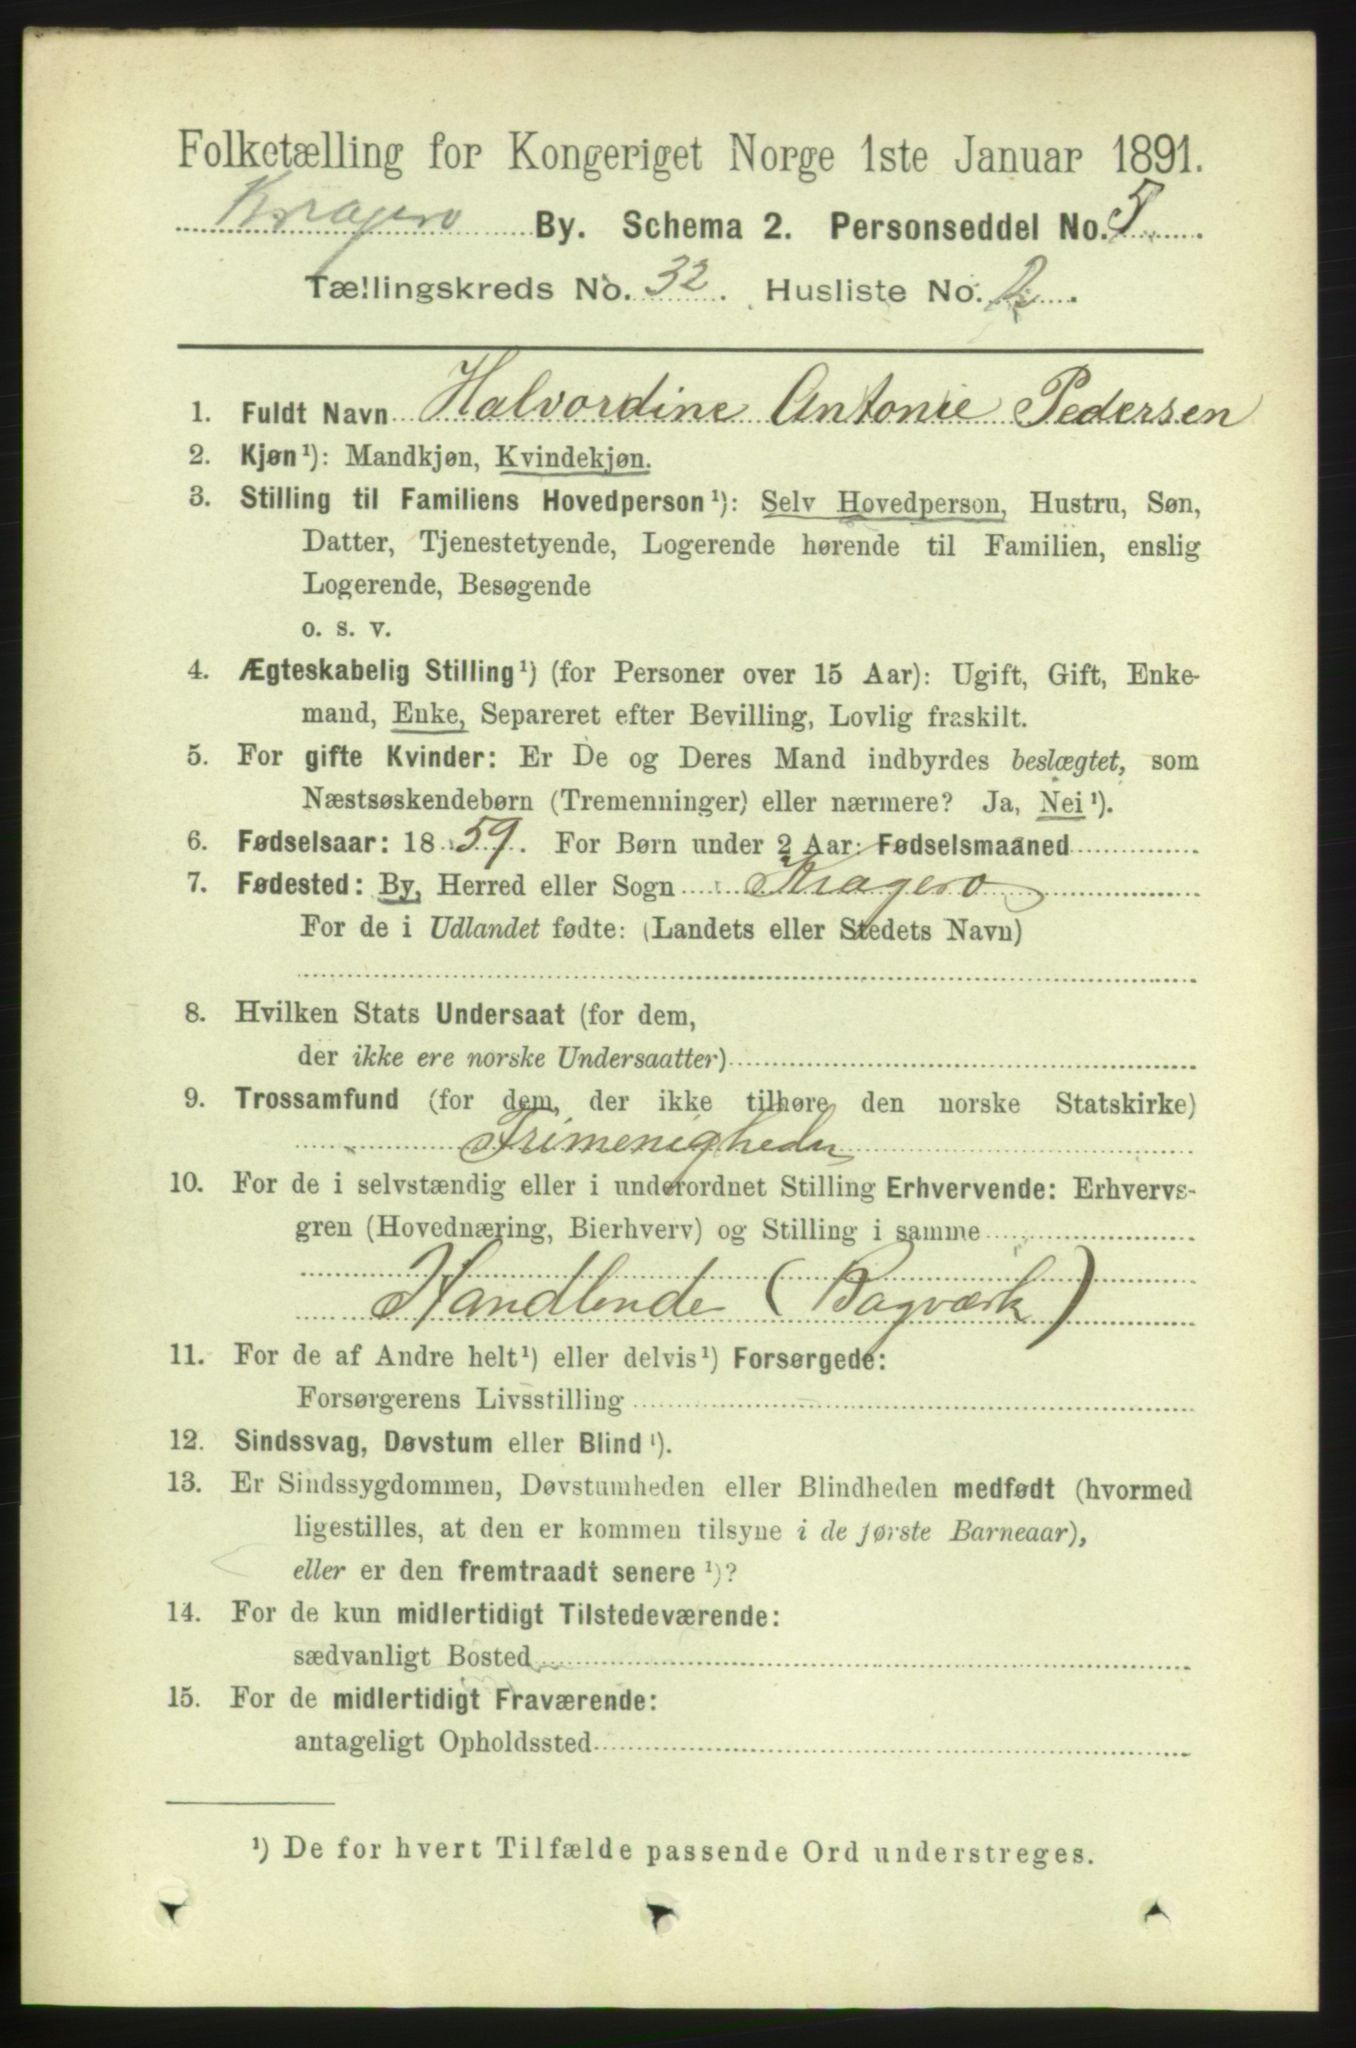 Folketælling for Kongeriget Norge 1ste Januar 1891.
Kragerø By. Schema 2. Personseddel No. 5
Tællingskreds No. 32. Husliste No. 2.
1. Fuldt Navn Halvordine Antonie Pedersen
2. Kjøn¹): Mandkjøn, Kvindekjøn.
3. Stilling til Familiens Hovedperson¹): Selv Hovedperson, Hustru, Søn,
Datter, Tjenestetyende, Logerende hørende til Familien, enslig
Logerende, Besøgende
o. s. v.
4. Ægteskabelig Stilling¹) (for Personer over 15 Aar): Ugift, Gift, Enke-
mand, Enke, Separeret efter Bevilling, Lovlig fraskilt.
5. For gifte Kvinder: Er De og Deres Mand indbyrdes beslægtet, som
Næstsøskendebørn (Tremenninger) eller nærmere? Ja, Nei¹).
6. Fødselsaar: 1859. For Børn under 2 Aar: Fødselsmaaned
7. Fødested: By, Herred eller Sogn Kragerø
For de i Udlandet fødte: (Landets eller Stedets Navn)
8. Hvilken Stats Undersaat (for dem,
der ikke ere norske Undersaatter)
9. Trossamfund (for dem, der ikke tilhøre den norske Statskirke)
Frimenigheden
10. For de i selvstændig eller i underordnet Stilling Erhvervende: Erhvervs-
gren (Hovednæring, Bierhverv) og Stilling i samme
Handlende (Bagværk)
11. For de af Andre helt¹) eller delvis¹) Forsørgede:
Forsørgerens Livsstilling
12. Sindssvag, Døvstum eller Blind¹).
13. Er Sindssygdommen, Døvstumheden eller Blindheden medfødt (hvormed
ligestilles, at den er kommen tilsyne i de første Barneaar),
eller er den fremtraadt senere¹)?
14. For de kun midlertidigt Tilstedeværende:
sædvanligt Bosted
15. For de midlertidigt Fraværende:
antageligt Opholdssted
¹) De for hvert Tilfælde passende Ord understreges.